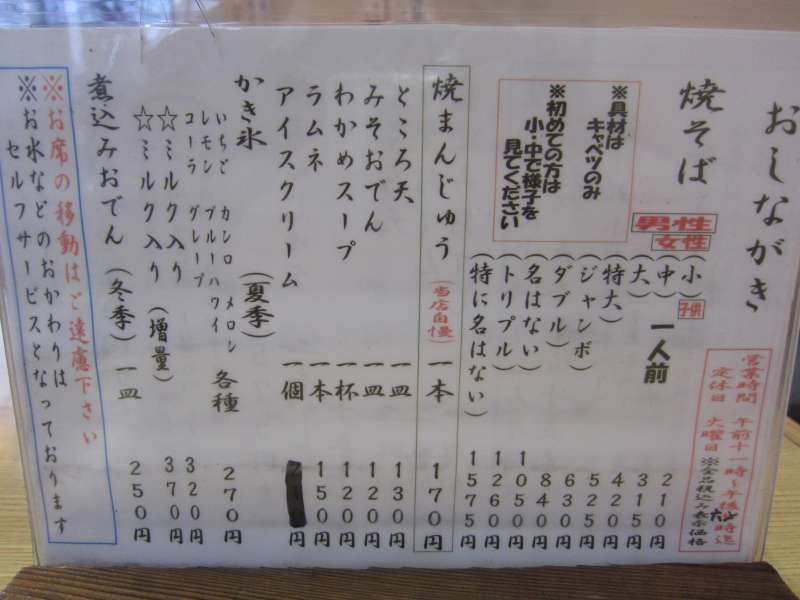 おしながき
営業時間 午前十一時～午後六時迄
定休日 火曜日 ※全品税込み表示価格
焼そば
男性
女性
子供
(小) 210円
(中) 一人前 315円
(大) 420円
(特大) 525円
(ジャンボ) 630円
(ダブル) 840円
(名はない) 1050円
(トリプル) 1260円
(特に名はない) 1575円
※具材は
キャベツのみ
※初めての方は
小・中で様子を
見てください
焼まんじゅう (当店自慢) 一本 170円
ところ天 一皿 130円
みそおでん 一皿 120円
わかめスープ 一杯 120円
ラムネ 一本 150円
アイスクリーム 一個 円
かき氷 (夏季)
いちご カンロ メロン
レモン ブルーハワイ 各種 270円
コーラ グレープ
☆ミルク入り 320円
☆ミルク入り (増量) 370円
煮込みおでん (冬季) 一皿 250円
※お席の移動はご遠慮下さい
※お水などのおかわりは
セルフサービスとなっております